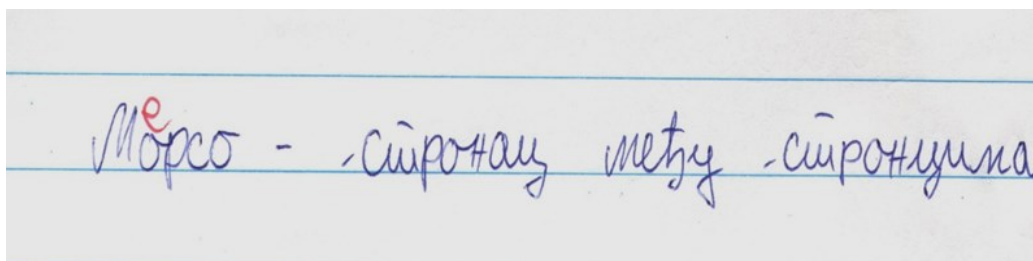 Морсо - странац међу странцима
е